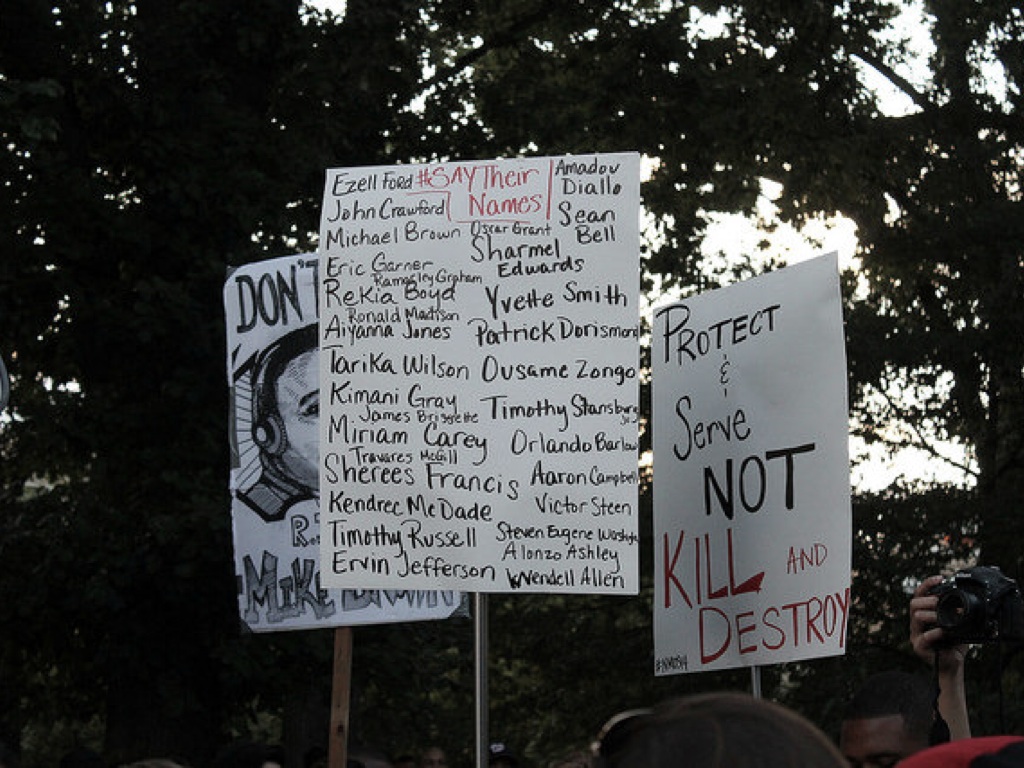 DON'T
MIKE BROWN
Ezell Ford #SAY Their
Names
John Crawford
Michael Brown
Oscar Grant
Eric Garner
Ramarley Graham
Rekia Boyd
Ronald Madison
Aiyanna Jones
Tarika Wilson
Kimani Gray
James Brissette
Miriam Carey
Travares McGill
Sherees Francis
Kendrec McDade
Timothy Russell
Ervin Jefferson
Amadou
Diallo
Sean
Bell
Sharmel
Edwards
Yvette Smith
Patrick Dorismond
Ousame Zongo
Timothy Stansbury
Orlando Barlow
Aaron Campbell
Victor Steen
Steven Eugene
Alonzo Ashley
Wendell Allen
PROTECT
&
Serve
NOT
KILL AND
DESTROY
#NMOS14